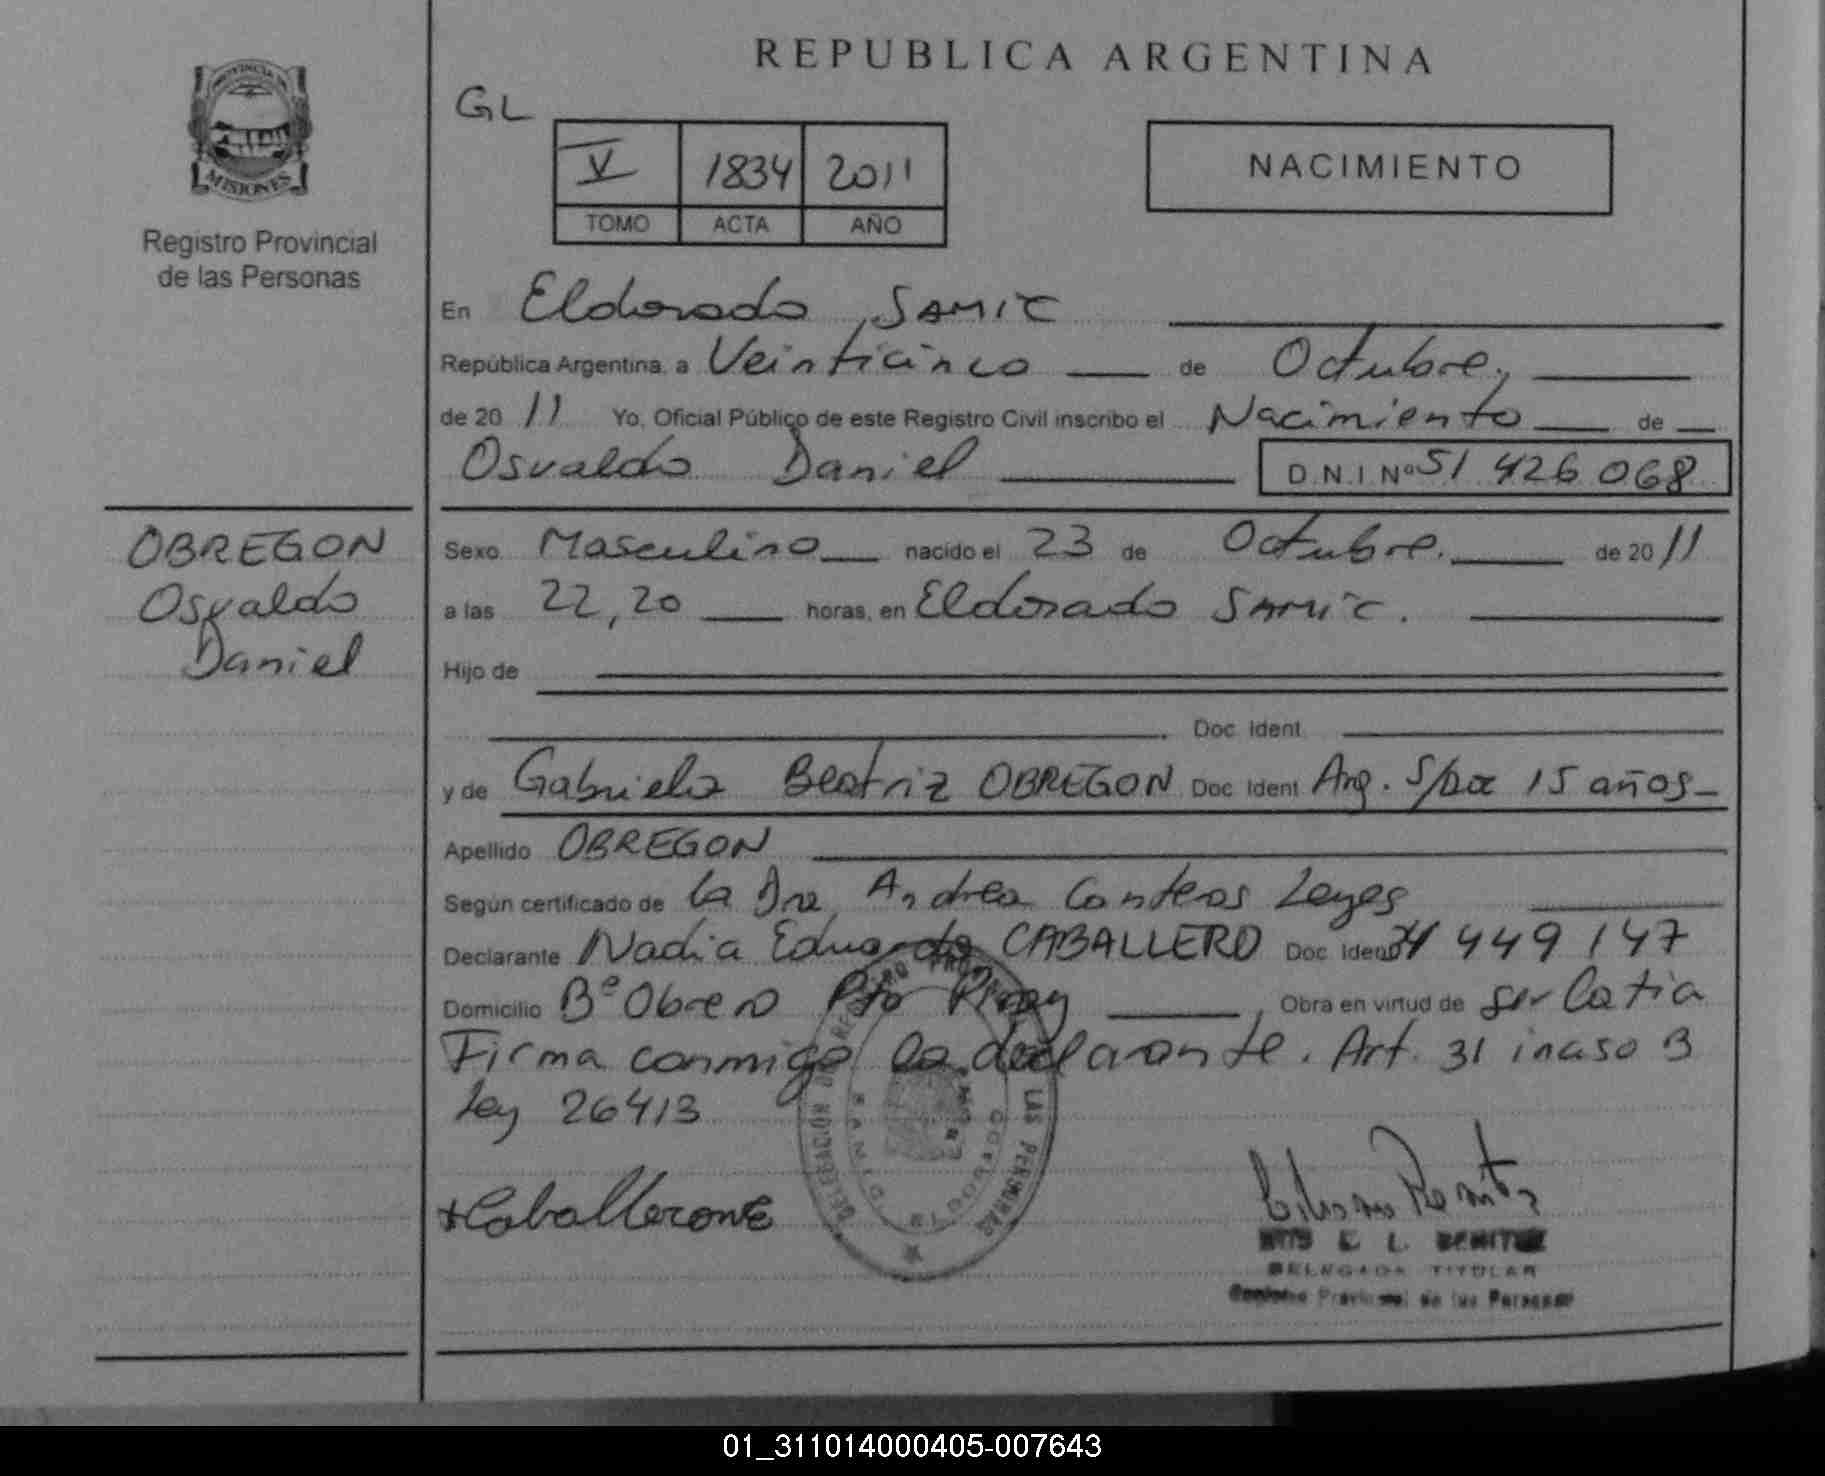 REPUBLICA ARGENTINA
PROVINCIA DE
MISIONES
Registro Provincial
de las Personas
GL
V 1834 2011
TOMO ACTA AÑO
NACIMIENTO
En Eldorado, SAMIC
República Argentina, a Veinticinco de Octubre,
de 2011 Yo, Oficial Público de este Registro Civil inscribo el Nacimiento de
Osvaldo Daniel D.N.I. Nº 51 426 068
OBREGON
Osvaldo
Daniel
Sexo Masculino nacido el 23 de Octubre. de 2011
a las 22,20 horas, en Eldorado SAMIC.
Hijo de
Doc. Ident.
y de Gabriela Beatriz OBREGON Doc. Ident. Arg. 15 años
Apellido OBREGON
Según certificado de la Dra Andrea Leyes
Declarante Nadia CABALLERO Doc. Ident. 34 449 147
Domicilio Bº Obrero Pto Piray, Obra en virtud de ser
Firma conmigo la declarante. Art. 31 inciso B
Ley 26413
DELEGACIÓN DEL REGISTRO LAS PERSONAS
BENITEZ
DELEGADA TITULAR
Registro Provincial de las Personas
01_311014000405-007643